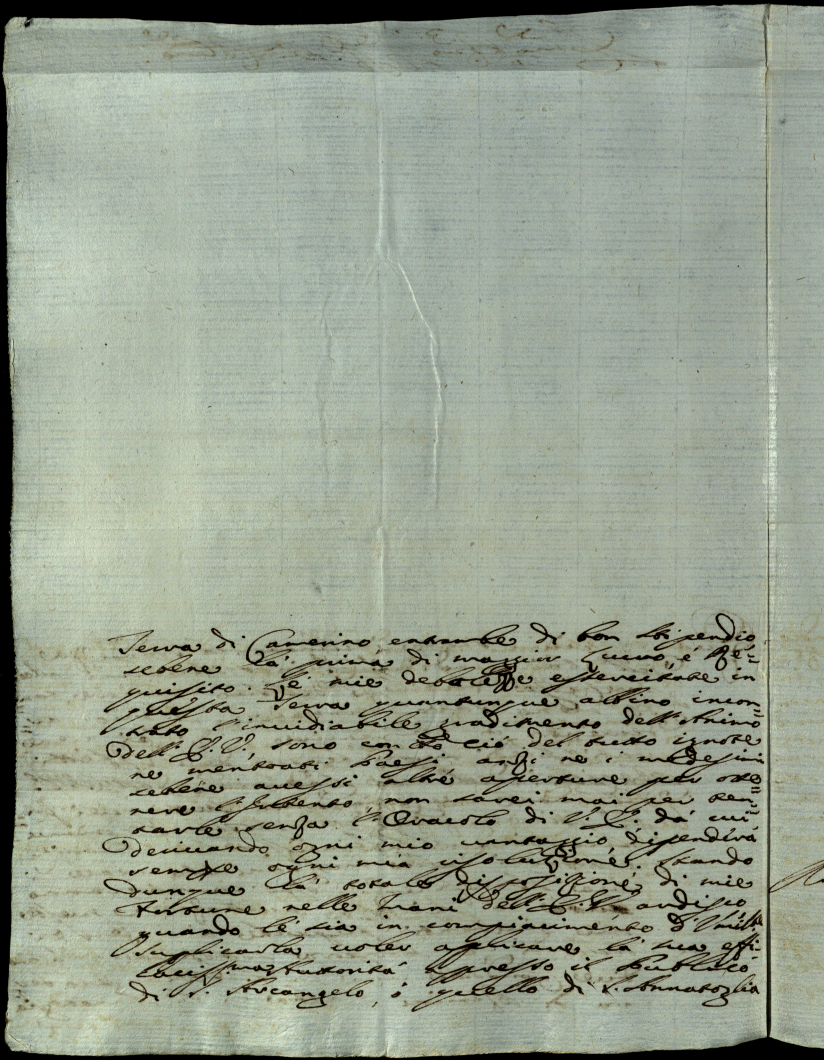 Terra di Camerino, entrambe di bon stipendio,
sebene la prima di maggior lucro, é Re=
quisito. Lé mie debolezze essercitate in
questa Terra quantunque abbino incon=
trato l'inuidiabile gradimento dell'Animo
dell'E. V., sono con tto ció del tutto ignote
ne mentouati Paesi, anzi ne i medesimi
sebene auessi altre aperture per otte=
nere l'Intento, non sarei mai per ten=
tarle senza l'Oracolo di V. E. dá cui
deriuando ogni mio uantaggio, dipenderá
sempre ogni mia risoluzione. Stando
dunque lá totale disposizione di mie
fortune nelle mani dell'E. V. ardisco
quando lé sia in compiacimento d'
suplicarla uoler applicare lá sua effi=
cacissima Autoritá appresso il Publico
di S. Arcangelo, ó quello di S. Annatoglia